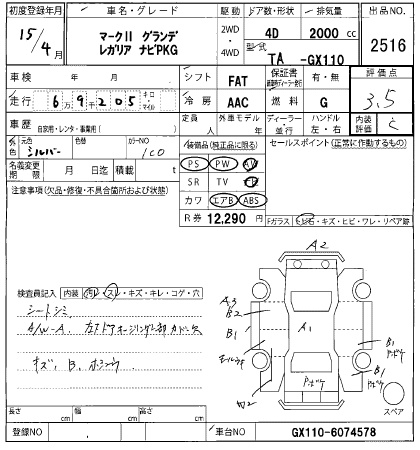 初度登録年月 車名・グレード 駆動 ドア数・形状 排気量 出品NO.
15/4月 マークII グランデ レガリア ナビPKG 2WD・4WD 4D 2000 cc 2516
型式 TA -GX110
車検 年 月 シフト FAT 保証書 有・無 評価点
走行 6万9千205 キロ・マイル 冷房 AAC 燃料 G 3.5
車歴 自家用・レンタ・事業用( ) 定員 人 外車モデル 年 ディーラー・並行 ハンドル 左・右 内装評価 C
外色 元色 シルバー 色替 カラーNO 1C0 装備品(純正品に限る) セールスポイント(正常に作動するもの)
名義変更期限 月 日迄 積載 t PS PW AW
注意事項(欠品・修復・不具合箇所および状態) SR TV
カワ エアB ABS
R券 12,290円
Fガラス トビ石・キズ・ヒビ・ワレ・リペア跡
検査員記入 内装 汚レ・スレ・キズ・キレ・コゲ・穴
シートシミ
A/W-A
キズ、B、
A2
A3
B2
B1
A1
B1
B1
スペア
長さ cm 幅 cm 高さ cm
登録NO 車台NO GX110-6074578